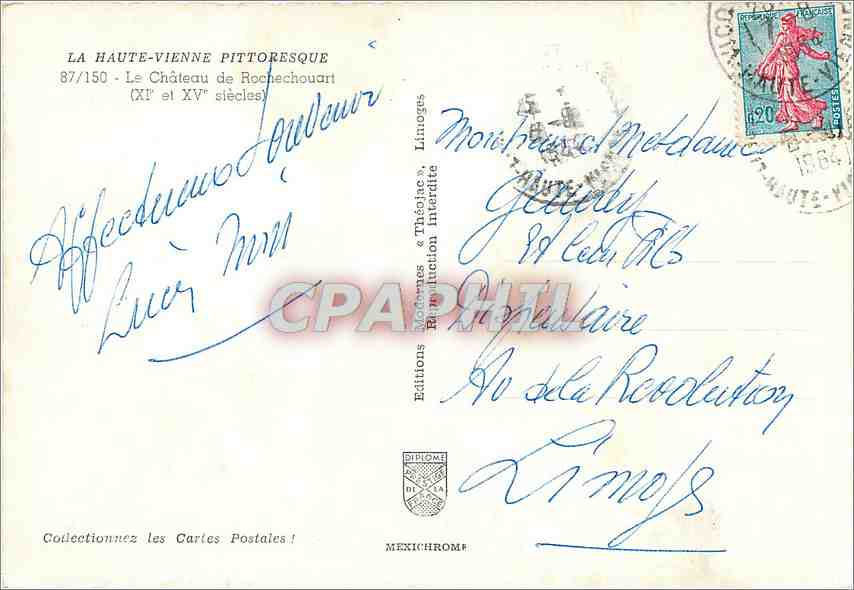 LA HAUTE-VIENNE PITTORESQUE
87/150 - Le Château de Rochechouart
(XIe et XVe siècles)
Affectueux Souvenir
Editions Modernes « Théojac », Limoges
Reproduction Interdite
REPUBLIQUE FRANÇAISE
0.20
POSTES
1964
HAUTE-VIENNE
Monsieur et Mesdames
et leur fils
Dispensaire
Av de la Revolution
Limoges
CPAPHIL
DIPLOME
PRESTIGE
DE LA
FRANCE
Collectionnez les Cartes Postales !
MEXICHROME